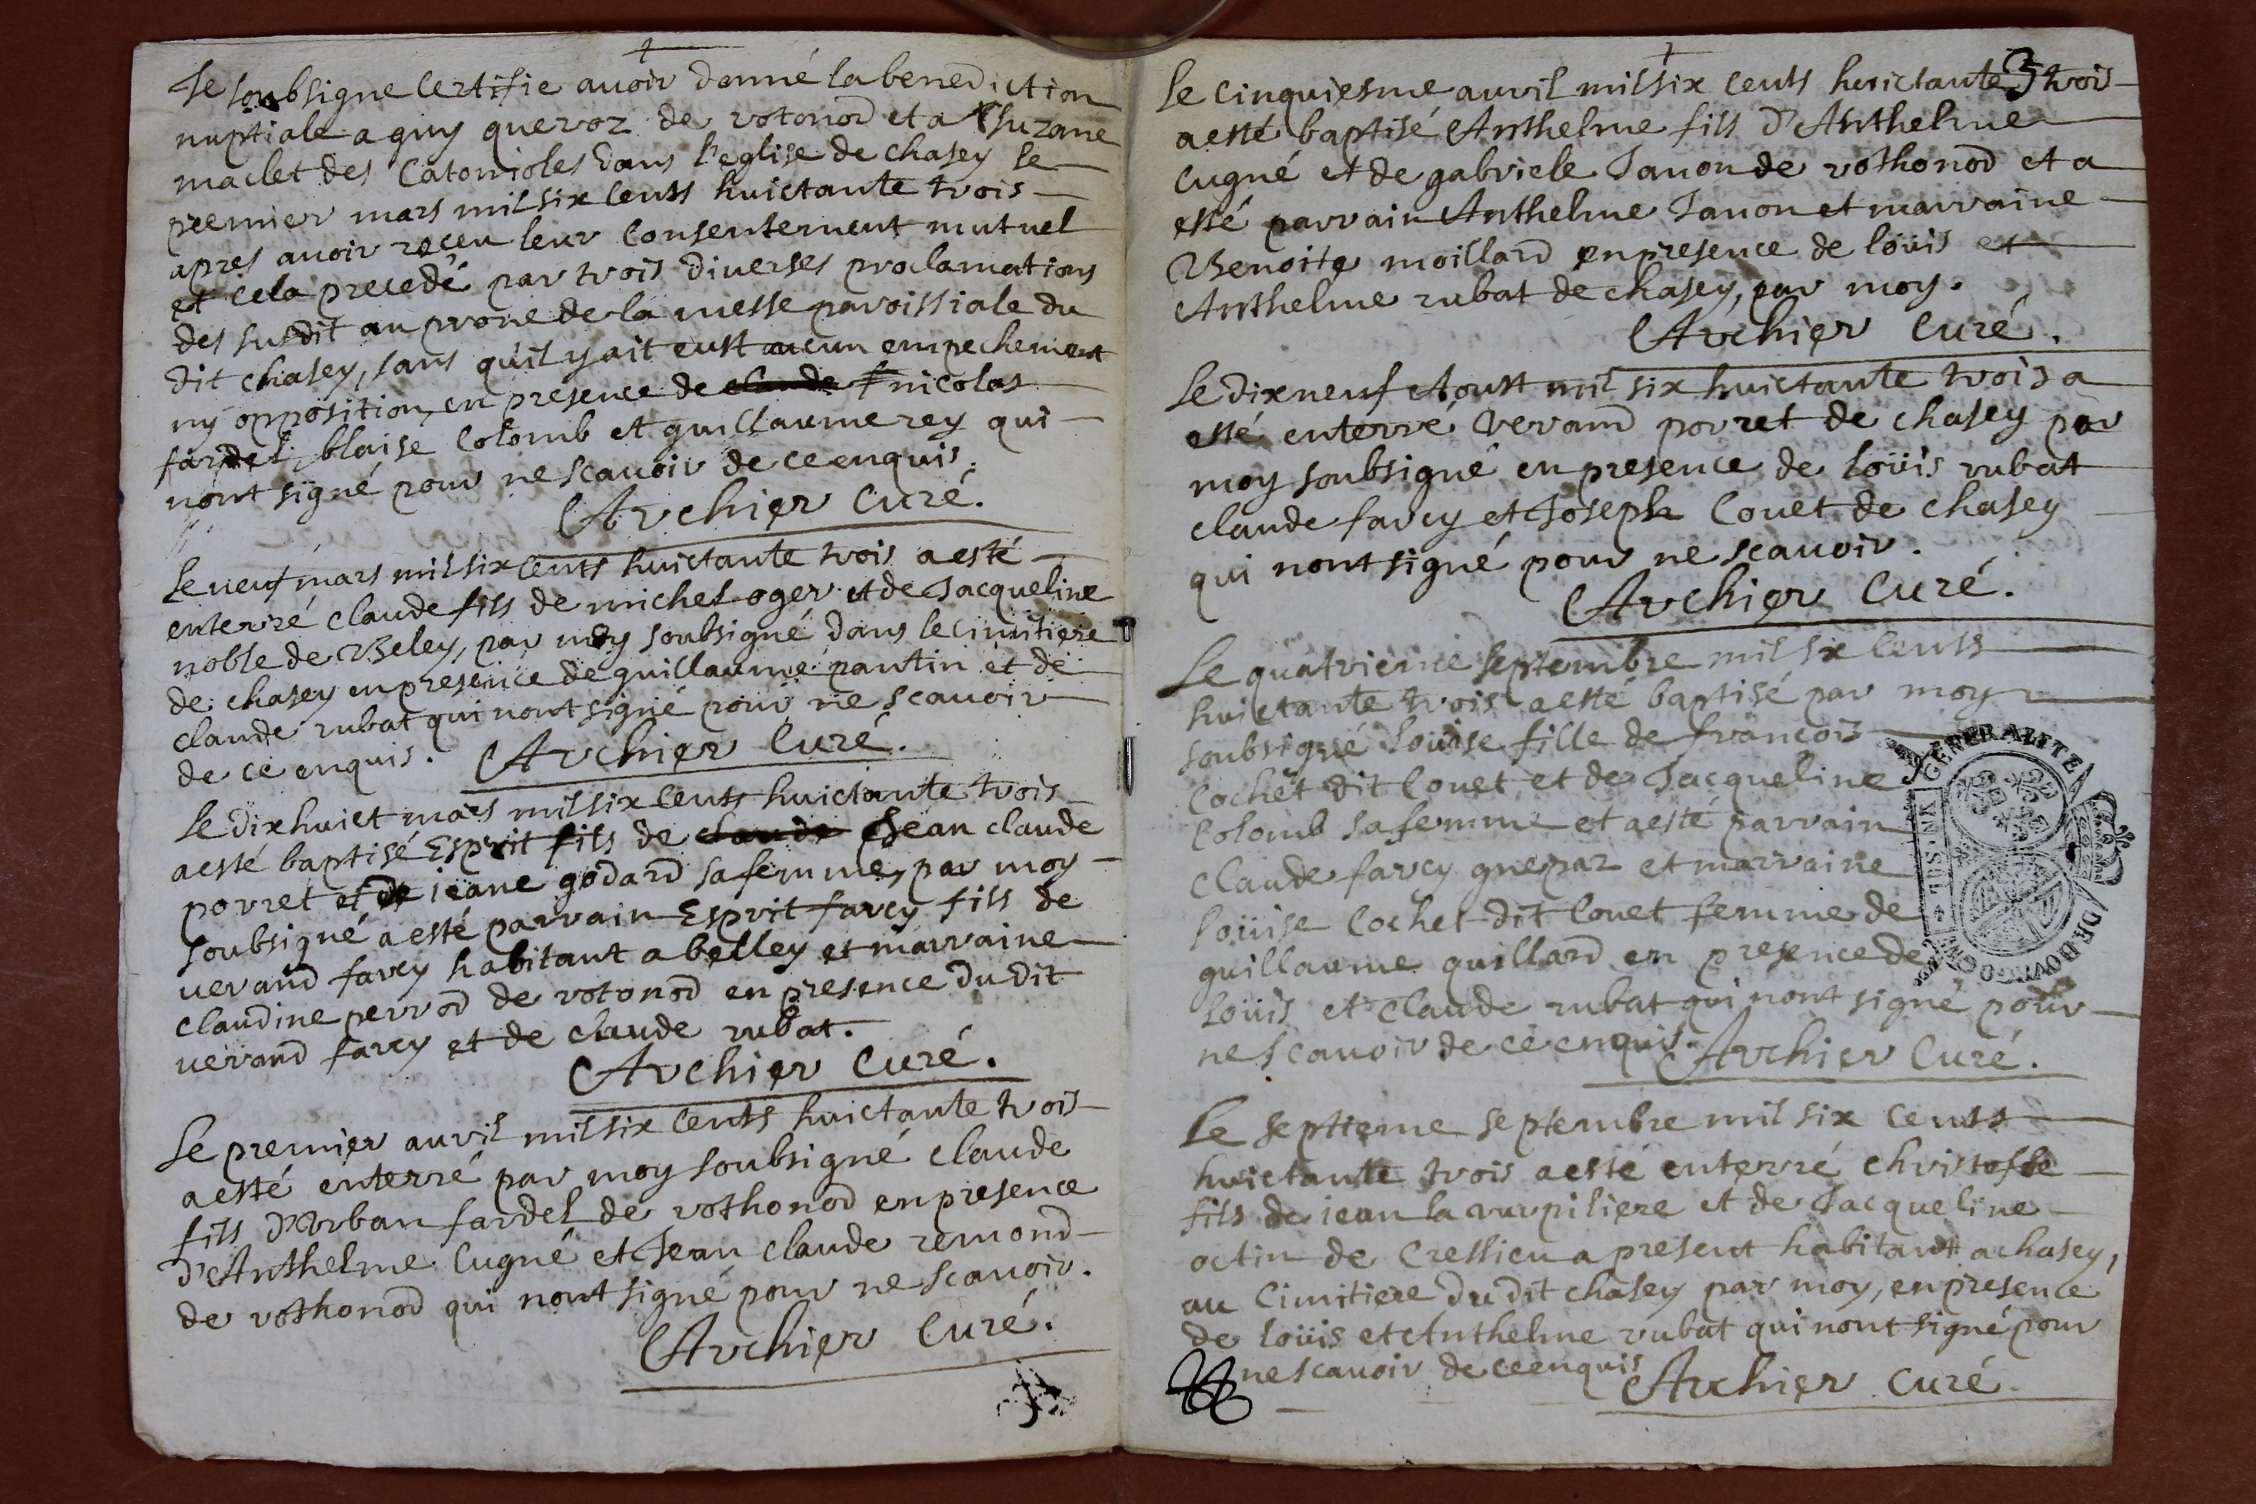 Je soubsigne Certifie avoir donné la benediction
nuptiale a guy queroz de votonod et a Suzane
maclet des Catonioles dans l'eglise de chasey le
premier mars mil six cents huictante trois
apres avoir receu leur Consentement mutuel
et cela precedé par trois diverses proclamations
des susdit au prone de la messe paroissiale du
dit chasey, sans qu'il y ait eust aucun empechement
ny opposition, en presence de claude nicolas
fardel, blaise Colomb et guillaume rey qui
nont signé pour ne scavoir de ce enquis.
Archier Curé.
Le neuf mars mil six cents huictante trois a esté
enterré claude fils de michel oger et de Jacqueline
noble de Beley, par moy soubsigné dans le cimitiere
de chasey en presence de guillaume pantin et de
claude rubat qui nont signé pour ne scavoir
de ce enquis. Archier Curé.
Le dixhuict mars mil six cents huictante trois
a esté baptisé Esprit fils de claude Jean claude
porret et de ieane godard sa femme, par moy
soubsigné a esté parrain Esprit farcy fils de
verand farcy habitant a belley et marraine
claudine perrod de votonod en presence du dit
verand farcy et de claude rubat.
Archier Curé.
Le premier avril mil six cents huictante trois
a esté enterré par moy soubsigné claude
fils d'Urban fardel de vothonod en presence
d'Anthelme Cugné et Jean claude remond
de vothonod qui nont signé pour ne scavoir.
Archier Curé.
3
Le cinquiesme avril mil six cents huictante trois
a esté baptisé Anthelme fils d'Anthelme
Cugné et de gabriele Janon de vothonod et a
esté parrain Anthelme Janon et marraine
Benoite moillard en presence de loüis et
Anthelme rubat de chasey, par moy.
Archier Curé.
Le dixneuf Aoust mil six huictante trois a
esté enterré verand porret de chasey par
moy soubsigné en presence de loüis rubat
claude farcy et Joseph Couet de chasey
qui nont signé pour ne scavoir.
Archier Curé.
Le quatrieme septembre mil six cents
huictante trois a esté baptisé par moy
soubsigné loüise fille de francois
Cochet dit Couet et de Jacqueline
Colomb sa femme et a esté parrain
Claude farcy guepaz et marraine
loüise Cochet dit Couet femme de
guillaume quillard en presence de
loüis et Claude rubat qui nont signé pour
ne scavoir de ce enquis. Archier Curé.
GENERALITE DE BOURGOGNE
Le septieme septembre mil six cents
huictante trois a esté enterré christofle
fils de iean la vurpiliere et de Jacqueline
octin de Cressieu a present habitant a chasey,
au Cimitiere du dit chasey par moy, en presence
de loüis et Anthelme rubat qui nont signé pour
ne scavoir de ce enquis Archier Curé.